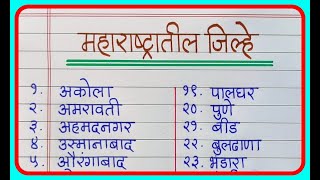 महाराष्ट्रातील जिल्हे
१. अकोला
२. अमरावती
३. अहमदनगर
४. उस्मानाबाद
५. औरंगाबाद
१९. पालघर
२०. पुणे
२१. बीड
२२. बुलढाणा
२३. भंडारा